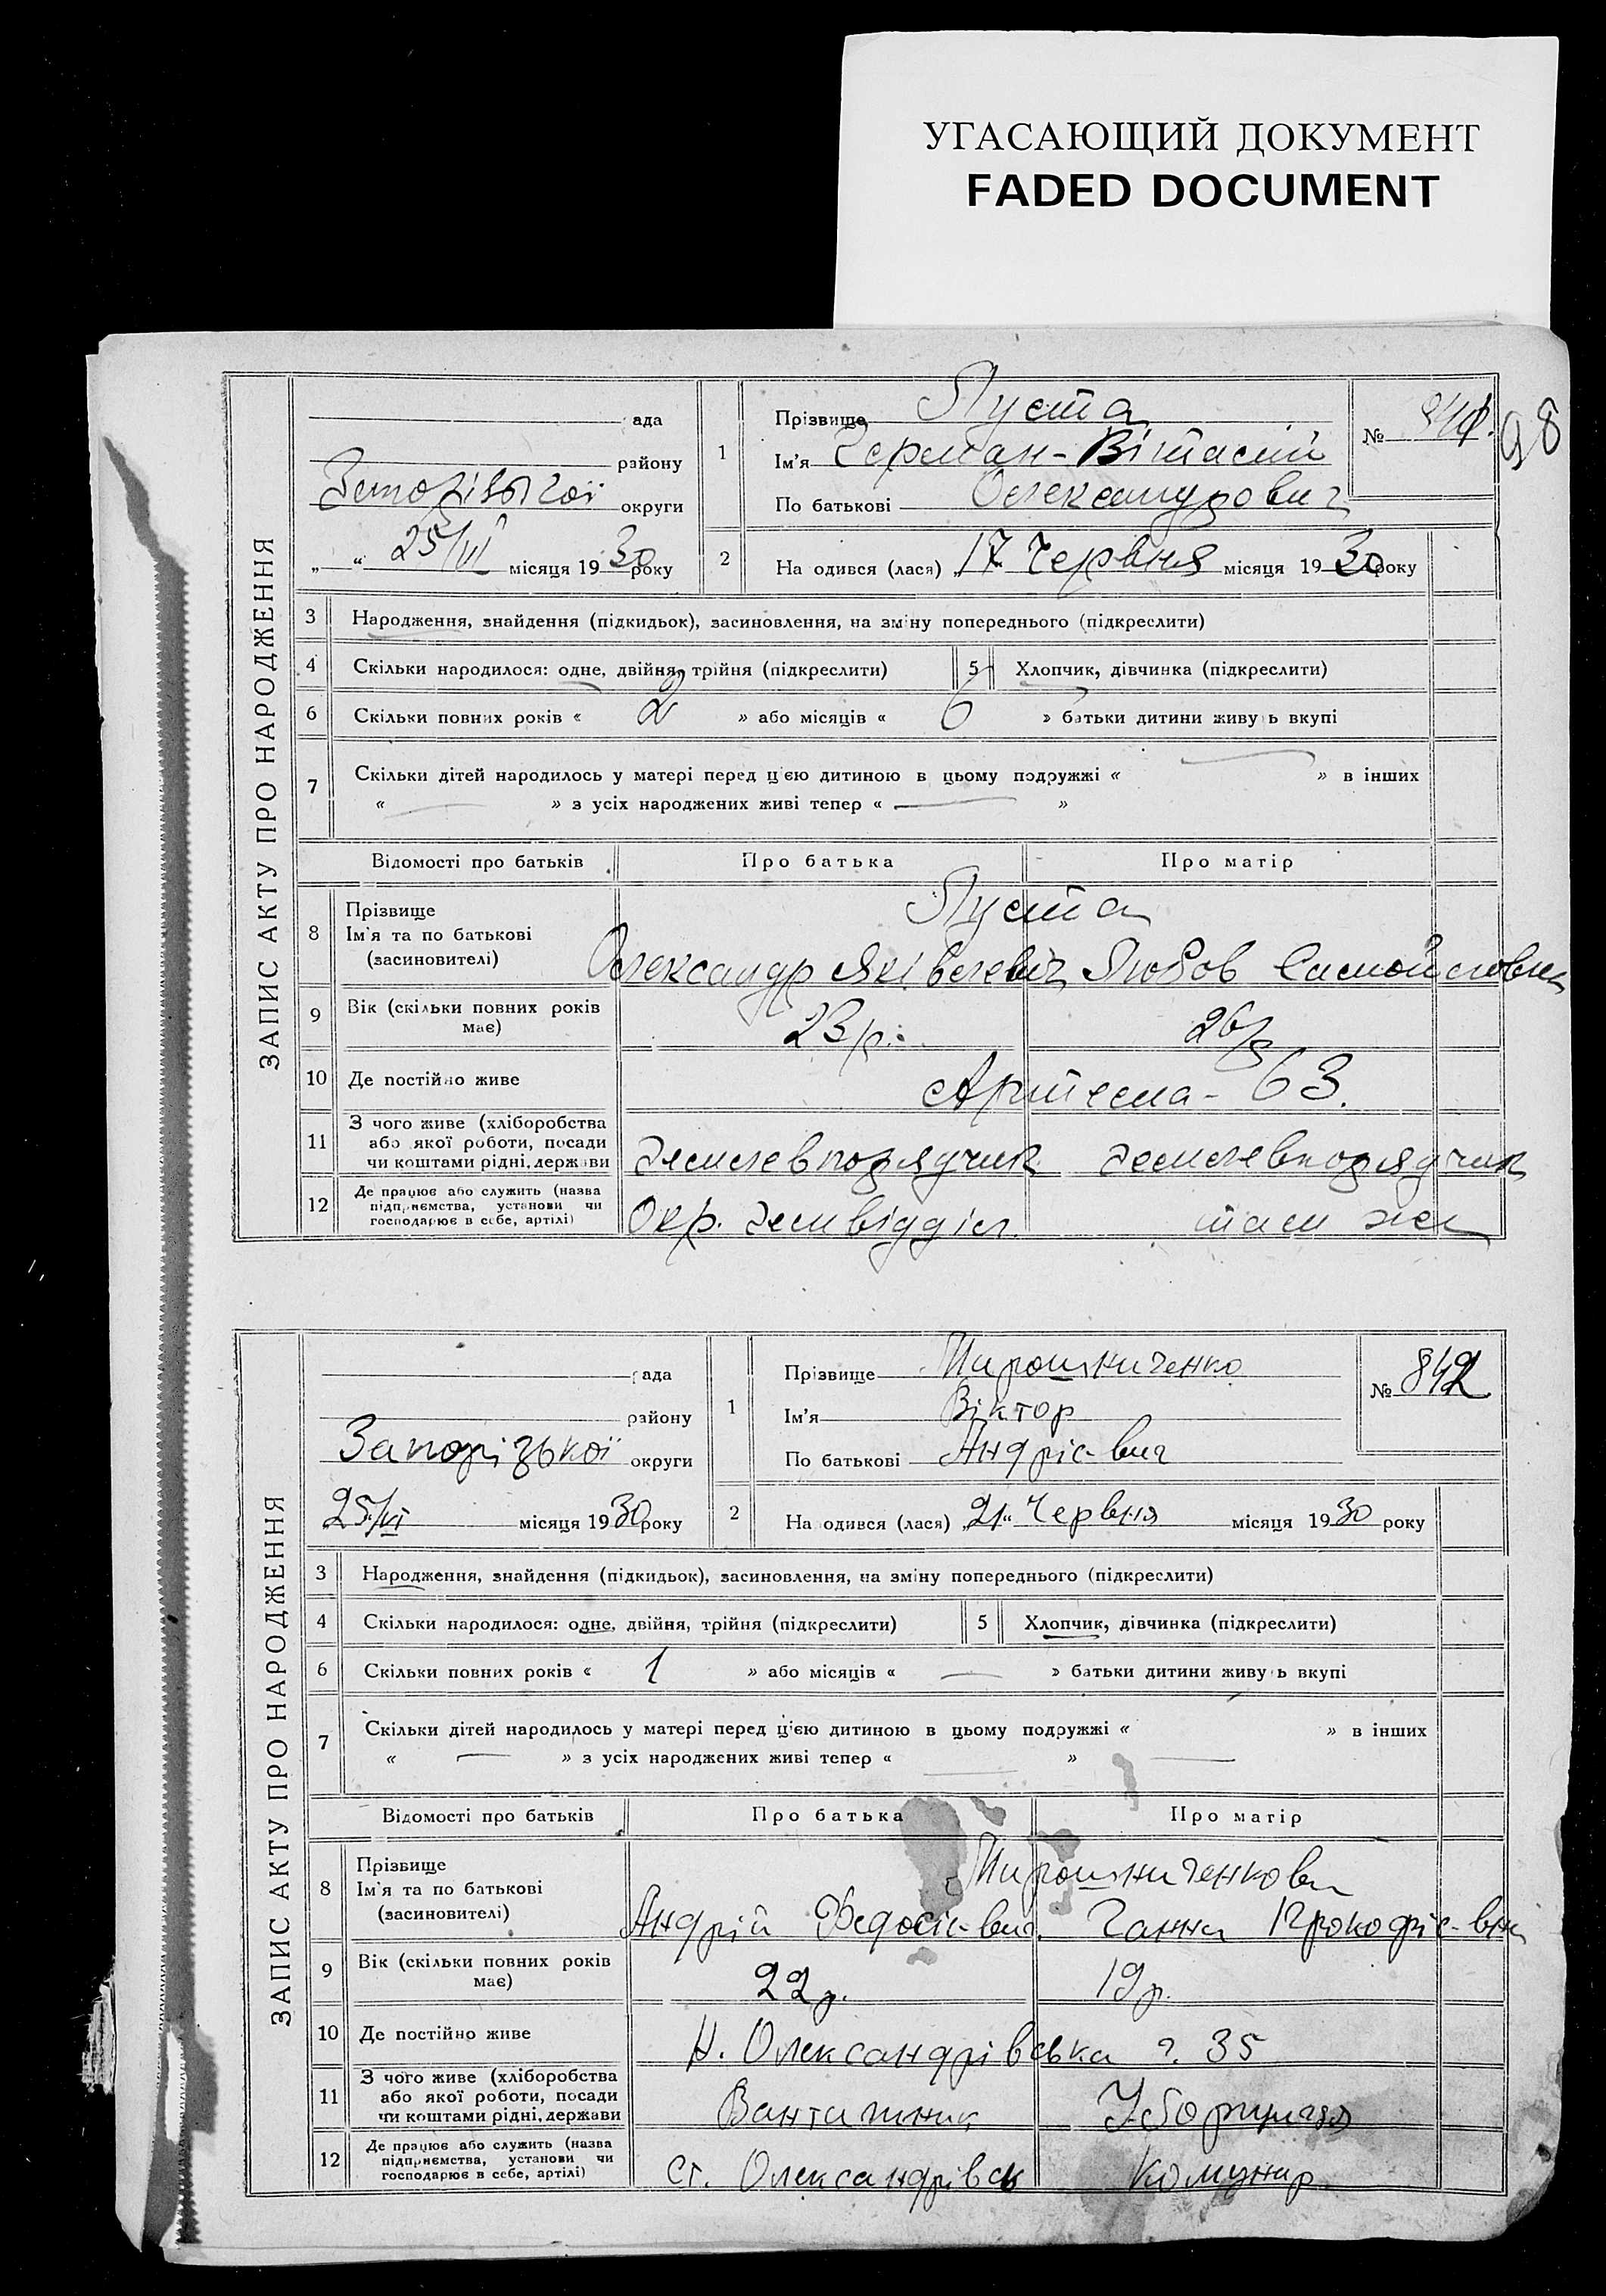 УГАСАЮЩИЙ ДОКУМЕНТ
FADED DOCUMENT
98
ЗАПИС АКТУ ПРО НАРОДЖЕННЯ
ада
району
Запорізької округи
„ “ 25/VI місяця 1930 року
1 Прізвище Пуста
Ім'я Герман-Віталій
По батькові Олександрович
№ 841.
2 На одився (лася) „17 Червня місяця 1930 року
3 Народження, знайдення (підкидьок), засиновлення, на зміну попереднього (підкреслити)
4 Скільки народилося: одне, двійня, трійня (підкреслити) 5 Хлопчик, дівчинка (підкреслити)
6 Скільки повних років « 2 » або місяців « 6 » батьки дитини живу ь вкупі
7 Скільки дітей народилось у матері перед цією дитиною в цьому подружжі « — » в інших
« — » з усіх народжених живі тепер « — »
Відомості про батьків Про батька Про матір
8 Прізвище Пуста
Ім'я та по батькові
(засиновителі) Олександр Яківлевіч Любов Самойловна
9 Вік (скільки повних років має) 23 р. 26 р
10 Де постійно живе Артема - 63.
11 З чого живе (хліборобства
або якої роботи, посади
чи коштами рідні, держави землевпорядчик землевпорядчик
12 Де працює або служить (назва
підприємства, установи чи
господарює в себе, артілі) Окр. земвідділ. там же
ЗАПИС АКТУ ПРО НАРОДЖЕННЯ
ада
району
Запорізької округи
25/VI місяця 1930 року
1 Прізвище Мирошниченко
Ім'я Віктор
По батькові Андріє-вич
№ 842
2 На одився (лася) „21“ Червня місяця 1930 року
3 Народження, знайдення (підкидьок), засиновлення, на зміну попереднього (підкреслити)
4 Скільки народилося: одне, двійня, трійня (підкреслити) 5 Хлопчик, дівчинка (підкреслити)
6 Скільки повних років « 1 » або місяців « — » батьки дитини живу ь вкупі
7 Скільки дітей народилось у матері перед цією дитиною в цьому подружжі « » в інших
« — » з усіх народжених живі тепер « — » —
Відомості про батьків Про батька Про матір
8 Прізвище Мирошниченкови
Ім'я та по батькові
(засиновителі) Андрій Федосіє-вич. Ганна Прокофіє-вна
9 Вік (скільки повних років має) 22 р. 19 р.
10 Де постійно живе Н. Олександрівська г. 35
11 З чого живе (хліборобства
або якої роботи, посади
чи коштами рідні, держави Вантажник Уборщиця
12 Де працює або служить (назва
підприємства, установи чи
господарює в себе, артілі) ст. Олександрівськ Комунар